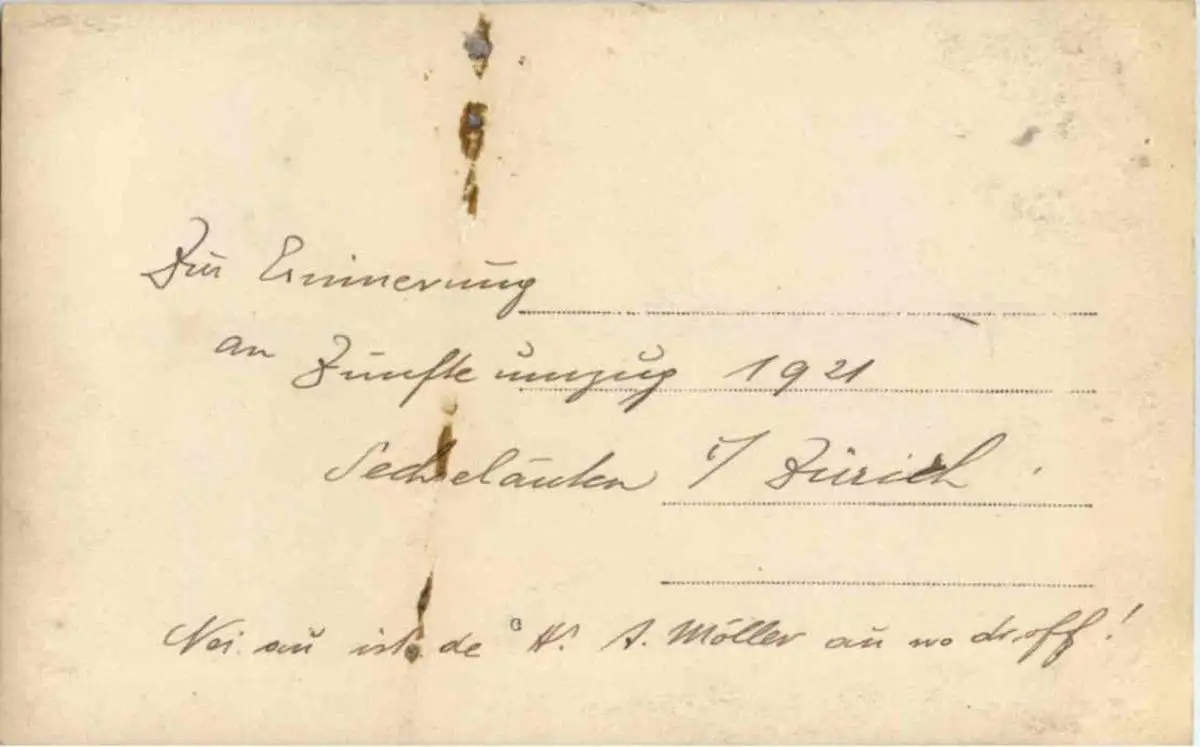 Zur Erinnerung
an Zunfteumzug 1921
Sechseläuten i/ Zürich.
Nei au ist de H. A. Möller au wo droff!